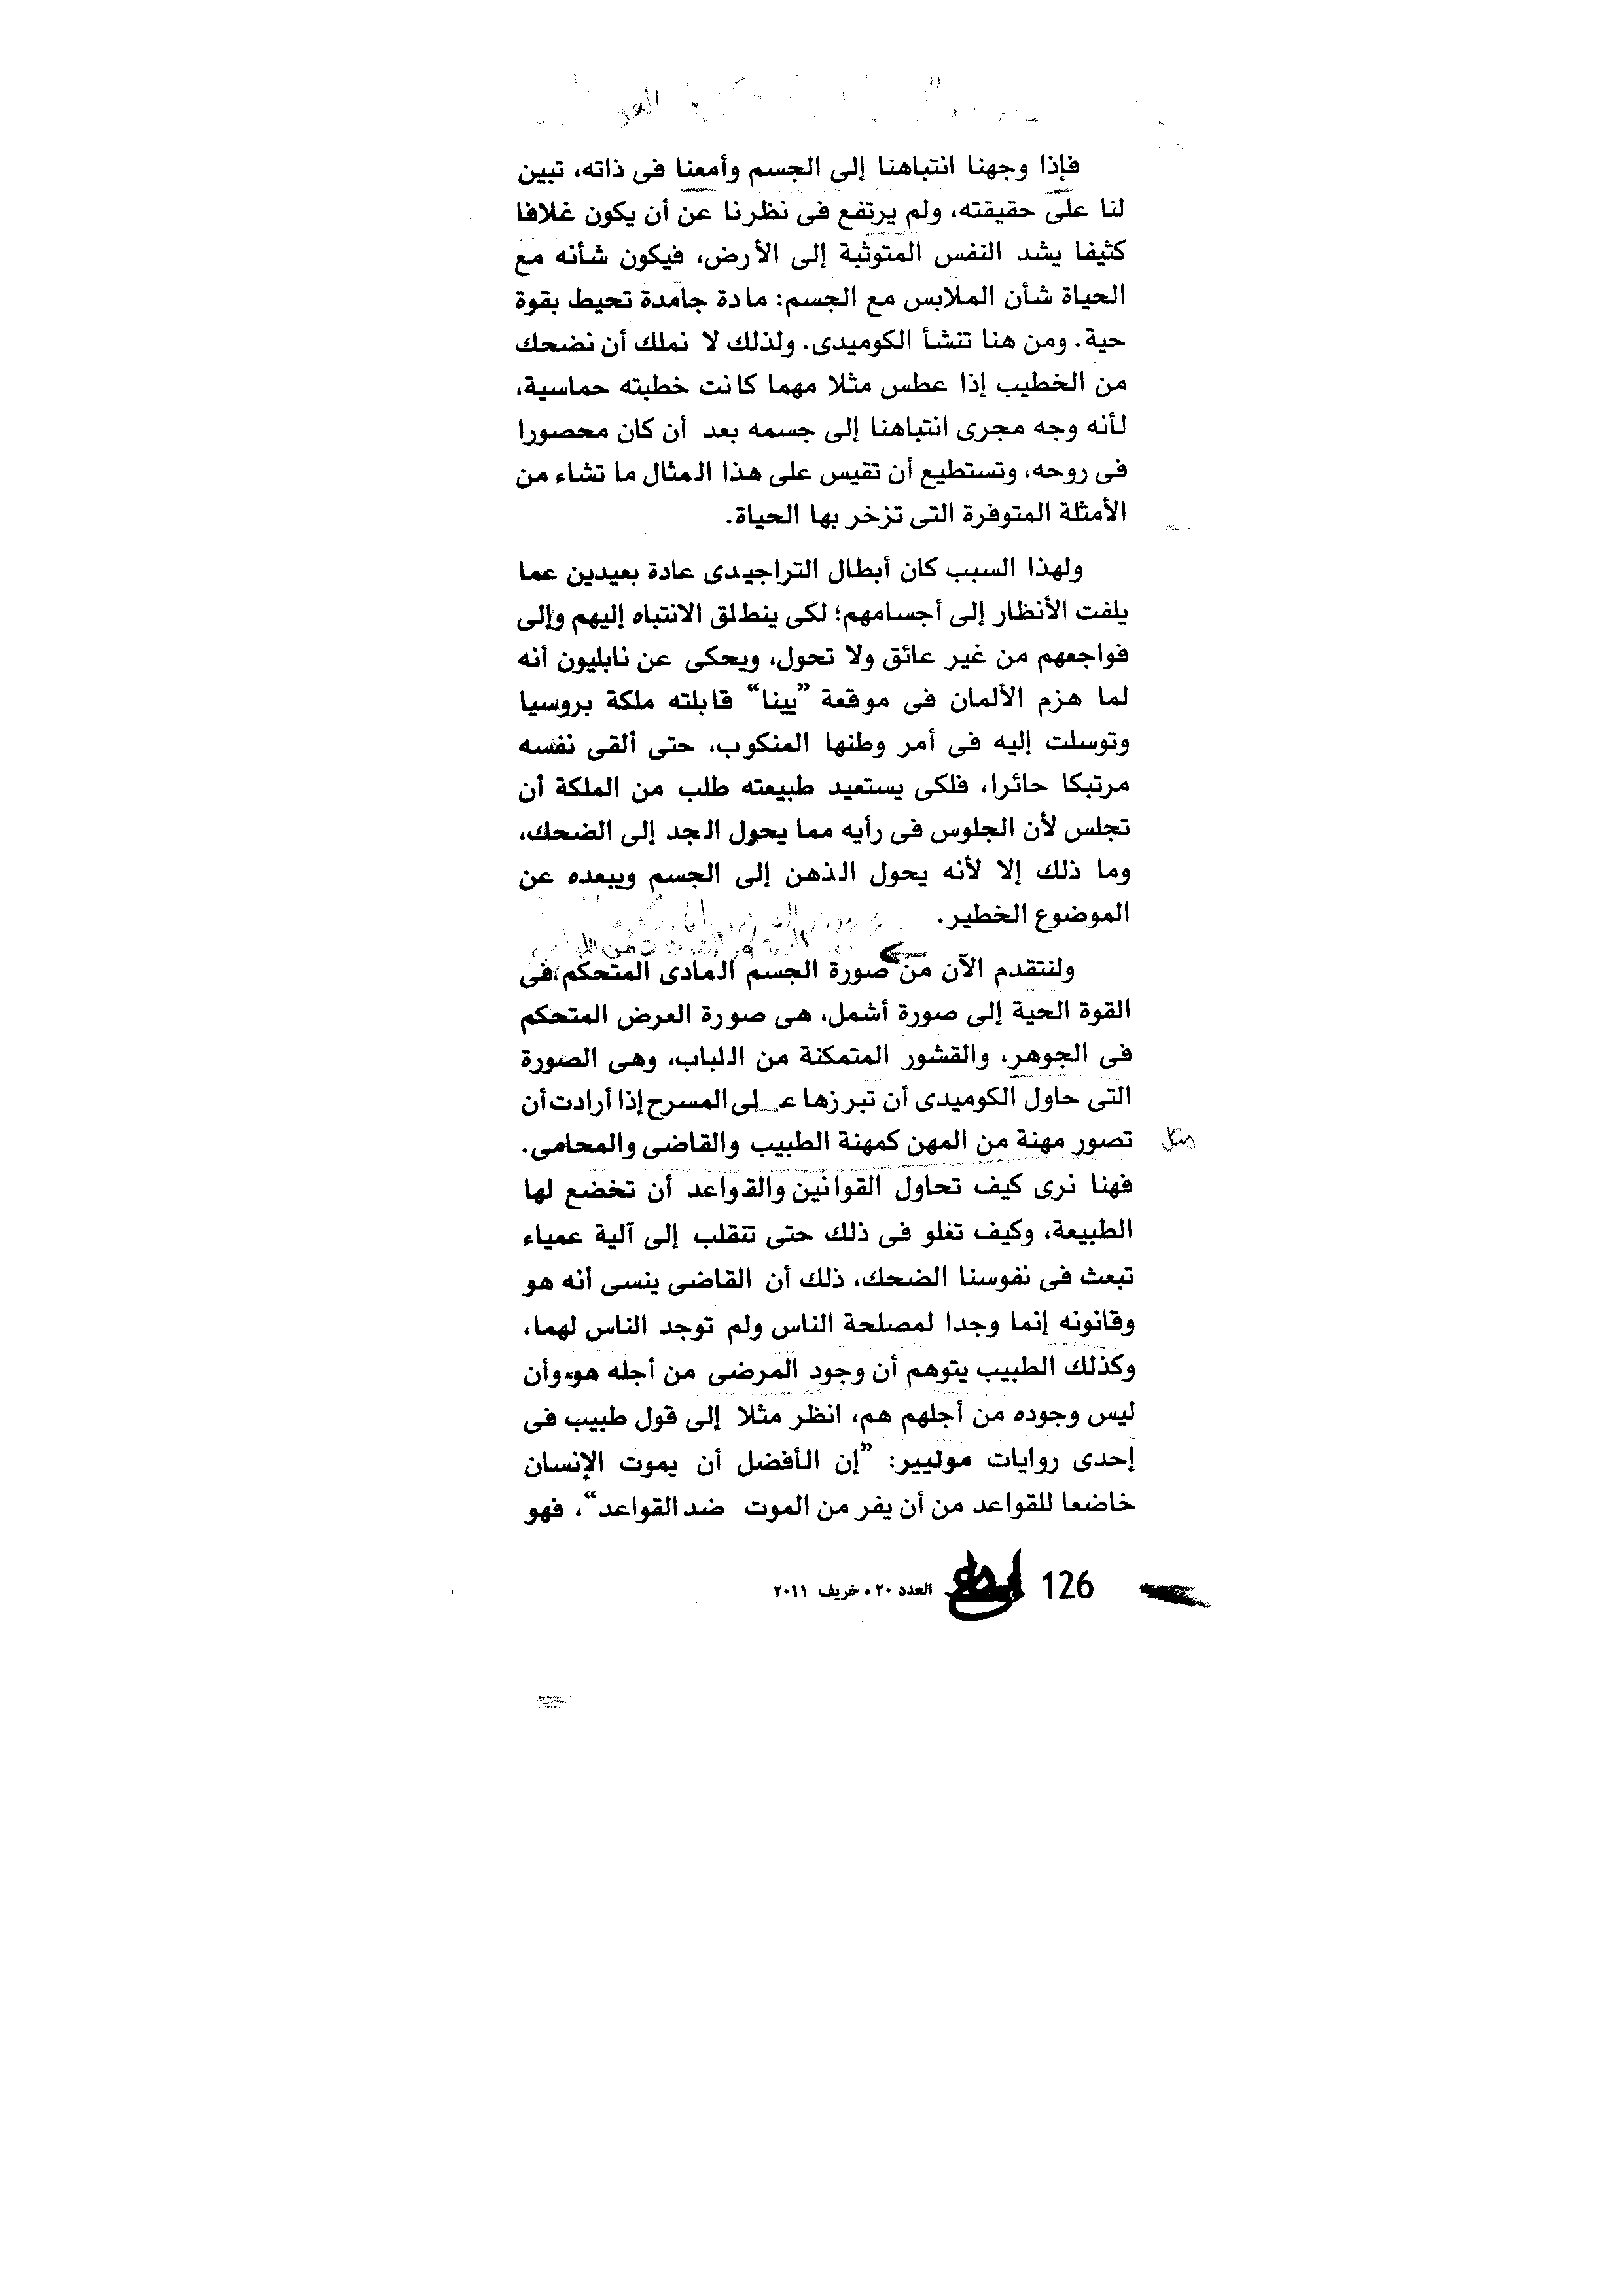 فإذا وجهنا انتباهنا إلى الجسم وأمعنا فى ذاته، تبين
لنا على حقيقته، ولم يرتفع فى نظرنا عن أن يكون غلافا
كثيفا يشد النفس المتوثبة إلى الأرض، فيكون شأنه مع
الحياة شأن الملابس مع الجسم: مادة جامدة تحيط بقوة
حية. ومن هنا تنشأ الكوميدى. ولذلك لا نملك أن نضحك
من الخطيب إذا عطس مثلا مهما كانت خطبته حماسية،
لأنه وجه مجرى انتباهنا إلى جسمه بعد أن كان محصورا
فى روحه، وتستطيع أن تقيس على هذا المثال ما تشاء من
الأمثلة المتوفرة التى تزخر بها الحياة.
ولهذا السبب كان أبطال التراجيدى عادة بعيدين عما
يلفت الأنظار إلى أجسامهم؛ لكى ينطلق الانتباه إليهم وإلى
فواجعهم من غير عائق ولا تحول، ويحكى عن نابليون أنه
لما هزم الألمان فى موقعة ”يينا“ قابلته ملكة بروسيا
وتوسلت إليه فى أمر وطنها المنكوب، حتى ألقى نفسه
مرتبكا حائرا، فلكى يستعيد طبيعته طلب من الملكة أن
تجلس لأن الجلوس فى رأيه مما يحول الجد إلى الضحك،
وما ذلك إلا لأنه يحول الذهن إلى الجسم ويبعده عن
الموضوع الخطير.
ولنتقدم الآن من صورة الجسم المادى المتحكم فى
القوة الحية إلى صورة أشمل، هى صورة العرض المتحكم
فى الجوهر، والقشور المتمكنة من اللباب، وهى الصورة
التى حاول الكوميدى أن تبرزها على المسرح إذا أرادت أن
تصور مهنة من المهن كمهنة الطبيب والقاضى والمحامى.
مثل
فهنا نرى كيف تحاول القوانين والقواعد أن تخضع لها
الطبيعة، وكيف تغلو فى ذلك حتى تنقلب إلى آلية عمياء
تبعث فى نفوسنا الضحك، ذلك أن القاضى ينسى أنه هو
وقانونه إنما وجدا لمصلحة الناس ولم توجد الناس لهما،
وكذلك الطبيب يتوهم أن وجود المرضى من أجله هو، وأن
ليس وجوده من أجلهم هم، انظر مثلا إلى قول طبيب فى
إحدى روايات موليير: ”إن الأفضل أن يموت الإنسان
خاضعا للقواعد من أن يفر من الموت ضد القواعد“، فهو
126 إبداع العدد ٢٠ • خريف ٢٠١١